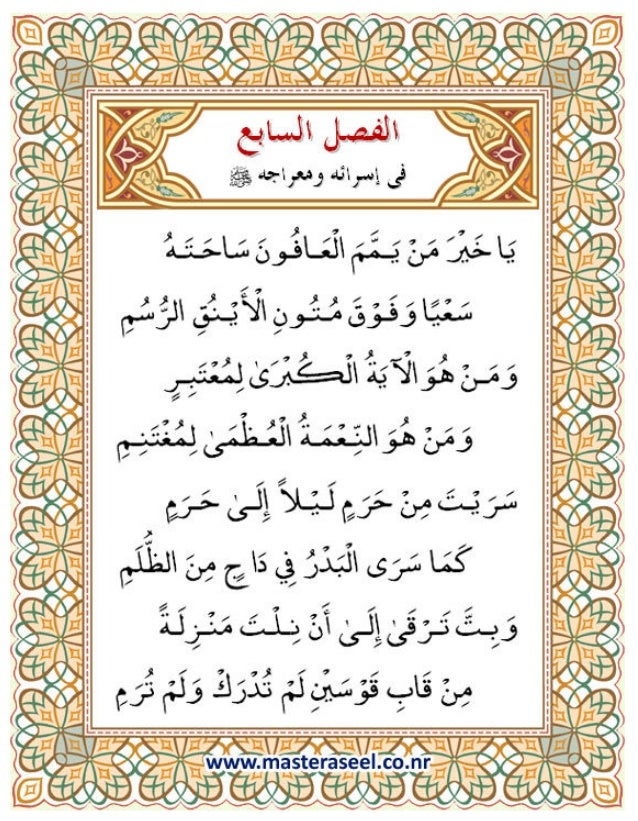 الفصل السابع
في إسرائه ومعراجه ﷺ
يَا خَيْرَ مَنْ يَـمَّمَ الْعَـافُـونَ سَـاحَـتَـهُ
سَعْيًا وَ فَـوْقَ مُـتُـونِ الْأَيْـنُـقِ الرُّسُمِ
وَ مَـنْ هُوَ الْآيَةُ الْكُبْرَىٰ لِمُعْتَبِـرٍ
وَ مَنْ هُوَ النِّعْمَـةُ الْعُظْمَىٰ لِمُغْتَنِـمِ
سَرَيْتَ مِنْ حَرَمٍ لَـيْـلاً إِلَـىٰ حَـرَمٍ
كَمَا سَرَى الْبَدْرُ فِي دَاجٍ مِنَ الظُّلَمِ
وَ بِـتَّ تَـرْقَىٰ إِلَـىٰ أَنْ نِـلْـتَ مَنْـزِلَـةً
مِنْ قَابِ قَوْسَيْنِ لَمْ تُدْرَكْ وَلَمْ تُرَمِ
www.masteraseel.co.nr